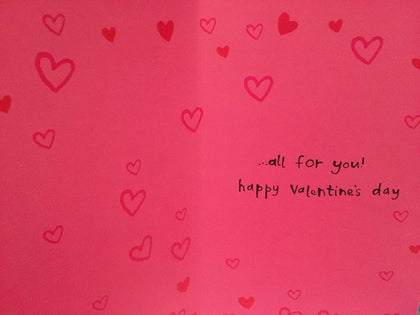 ...all for you!
happy Valentine's day